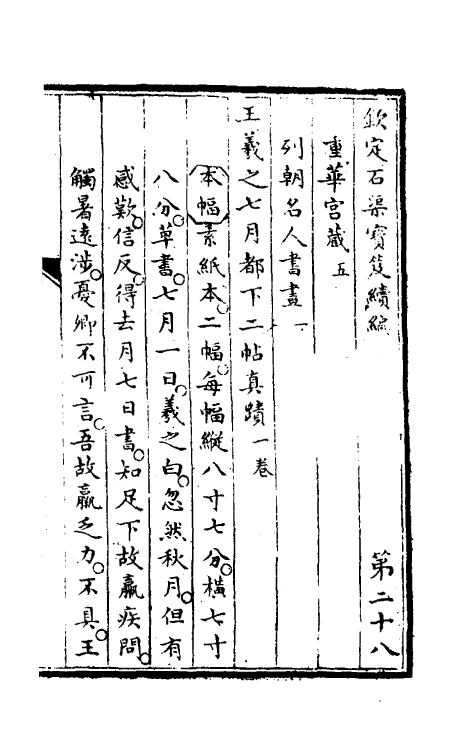 欽定石渠寶笈續編 第二十八
重華宮藏五
列朝名人書畫一
王羲之七月都下二帖真蹟一卷
本幅素紙本。二幅。每幅縱八寸七分。橫七寸
八分。草書。七月一日。羲之白。忽然秋月。但有
感歎。信反。得去月七日書。知足下故羸疾問。
觸暑遠涉。憂卿不可言。吾故羸乏力。不具。王